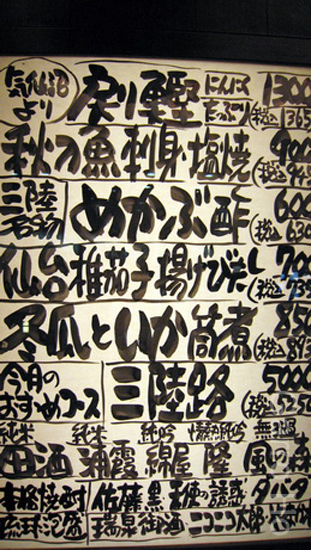 気仙沼より 戻り鰹 にんにくたっぷり 1300 (税込1365)
秋刀魚刺身・塩焼 900 (税込945
三陸名物 めかぶ酢 600 (税込630
仙台椎茄子揚げびたし 700 (税込735
冬瓜といか筒煮 850 (税込893
今月のおすすめコース 三陸路 5000 (税込5250
純米 純米 純吟 情熱純吟 無濾過
田酒 浦霞 綿屋 隆 風の森
本格焼酎 佐藤黒 天使の誘惑 ダバダ
琉球泡盛 瑞泉御酒 ニコニコ太郎